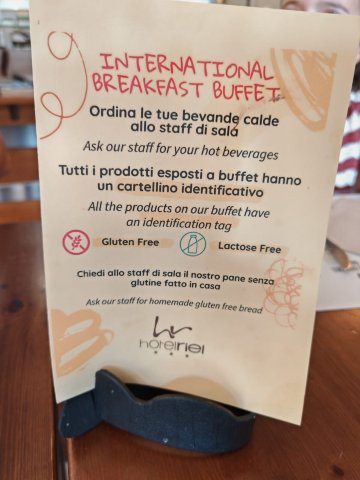 INTERNATIONAL
BREAKFAST BUFFET
Ordina le tue bevande calde
allo staff di sala
Ask our staff for your hot beverages
Tutti i prodotti esposti a buffet hanno
un cartellino identificativo
All the products on our buffet have
an identification tag
Gluten Free
Lactose Free
Chiedi allo staff di sala il nostro pane senza
glutine fatto in casa
Ask our staff for homemade gluten free bread
hr
hotelriel